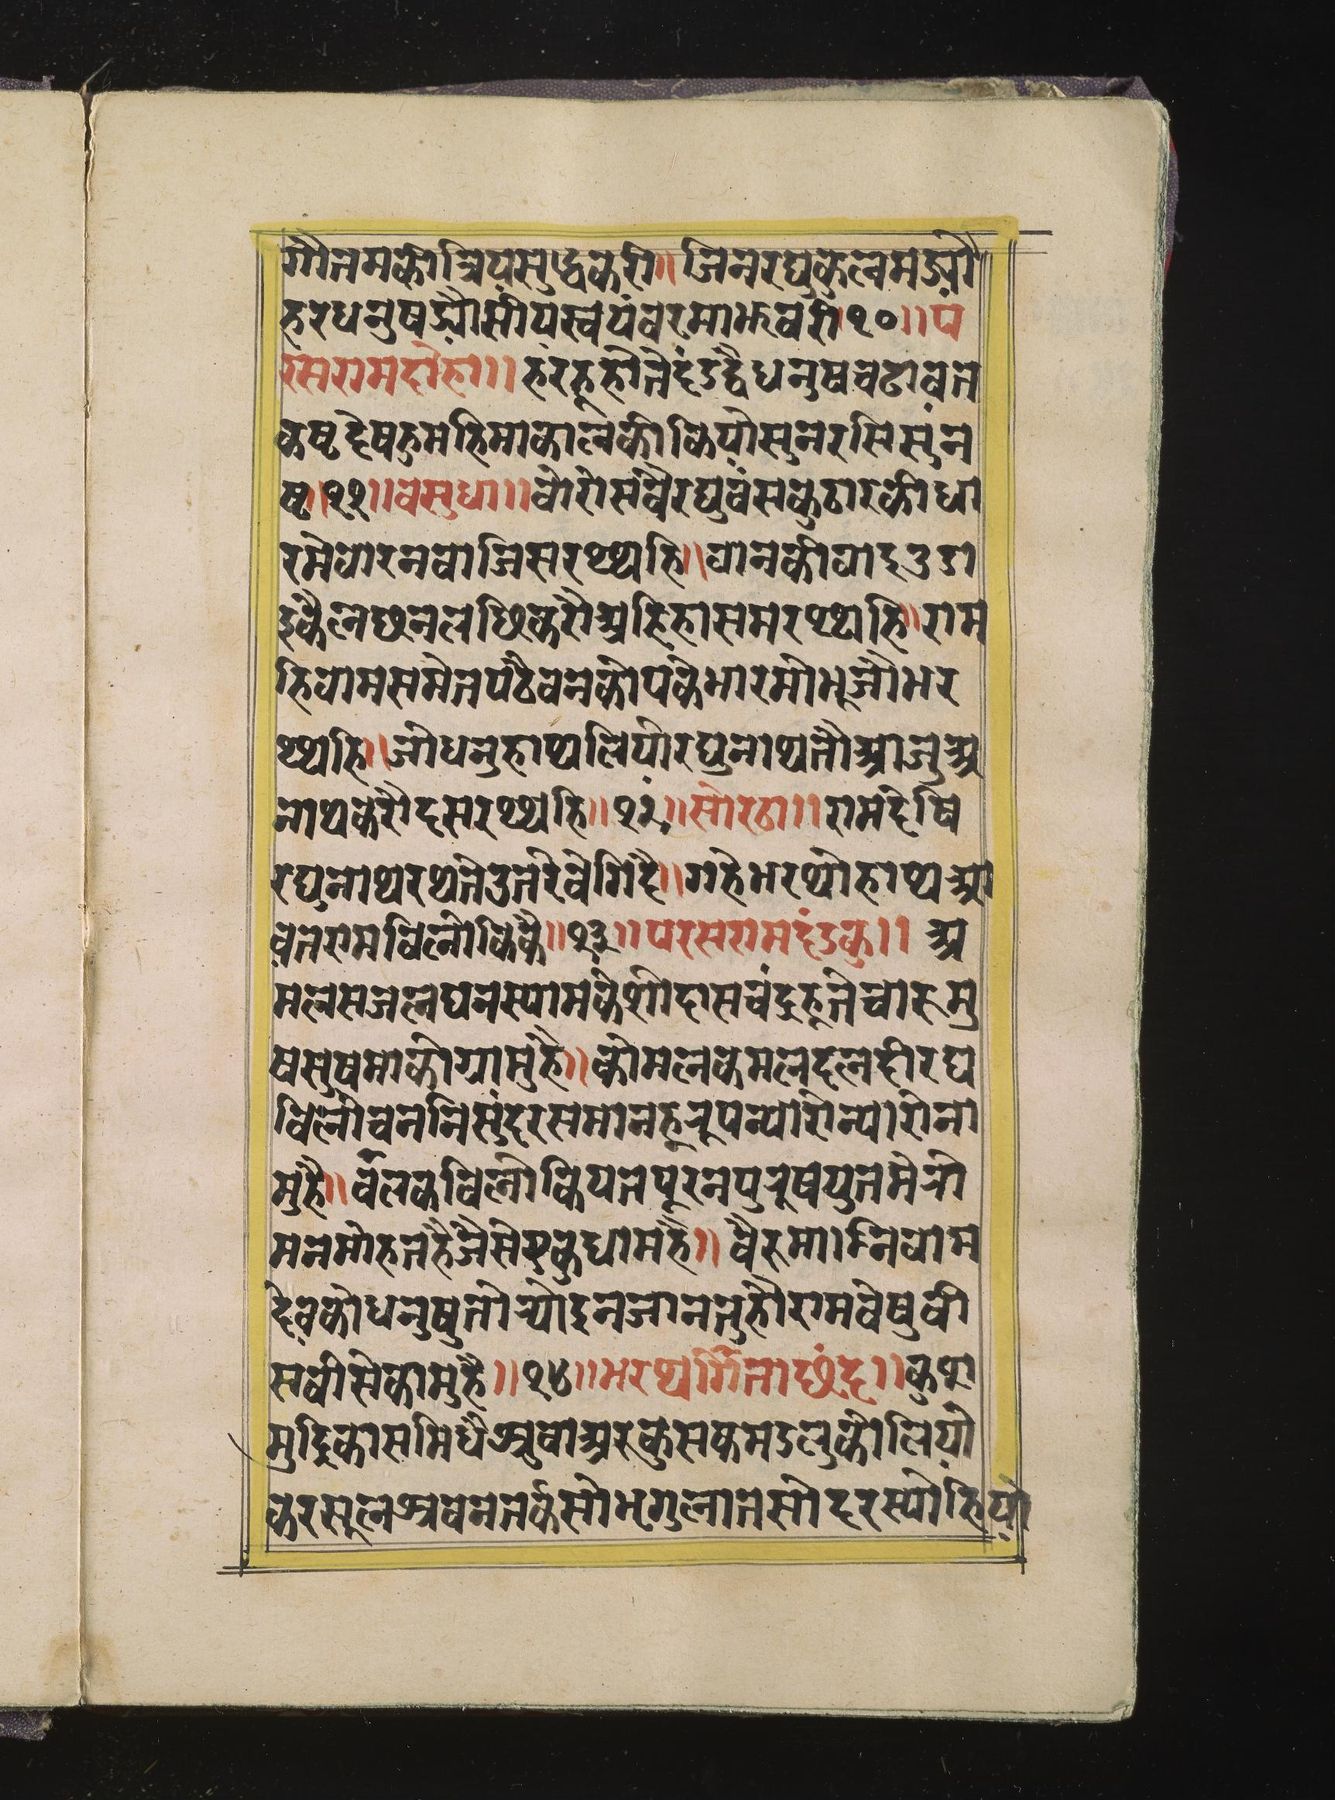 गौतमकीत्रियसुद्धकरी॥जिनरघुकुलमड्यौ
हरधनुषड्यौसीयस्वयंवरमाझवरी॥१०॥पं
रसरामदोहा॥हरहूहौतेदंडद्वैधनुषचढावत
कष्टदेषतुमहिमाकालकीकियौसुनरसिसुन
ष्ट॥११॥वसुधा॥वोरोसवैरघुवंसकुठारकीधा
रमेवारनवाजिसरथ्थहि॥वानकीवाइउडा
इकैलछनलछिकरौअहिहासमरथ्थहि॥राम
हिवामसमेतपठैवनकोपकेभारमौभूजौभर
थ्थहि॥जौधनुहाथलियौरघुनाथतौआजुअ
नाथकरौदसरथ्थहि॥१२॥सोरठा॥रामदेषि
रघुनाथरथतेउतरेवेगिदै॥गहेभरथौहाथआ
वतरामविलोकिकै॥१३॥परसरामदंडकु॥अ
मलसजलघनस्यामकेशौदासचंदहूतेचारुमु
षसुषमाकौग्रामुहै॥कोमलकमलदलदीरघ
विलोचननिसुंदरसमानहूरूपन्यारोन्यारोना
मुहै॥वॅलकविलोकियतपूरनपुरूषयुतमेरो
मनमोहतहैजैसेएकुधामहै॥वैरुमानिवाम
देवकोधनुषुतोर्‍योइनजानतुहौरामवेषुवी
सवीसेकामुहै॥१४॥भरथगीताछंद॥कुश
मुद्रिकासमिधैश्रुवाअरुकुसकमडलुकौलियौ
करसूलश्रवननतर्कसौभगुलातसौदरस्यौहियौ